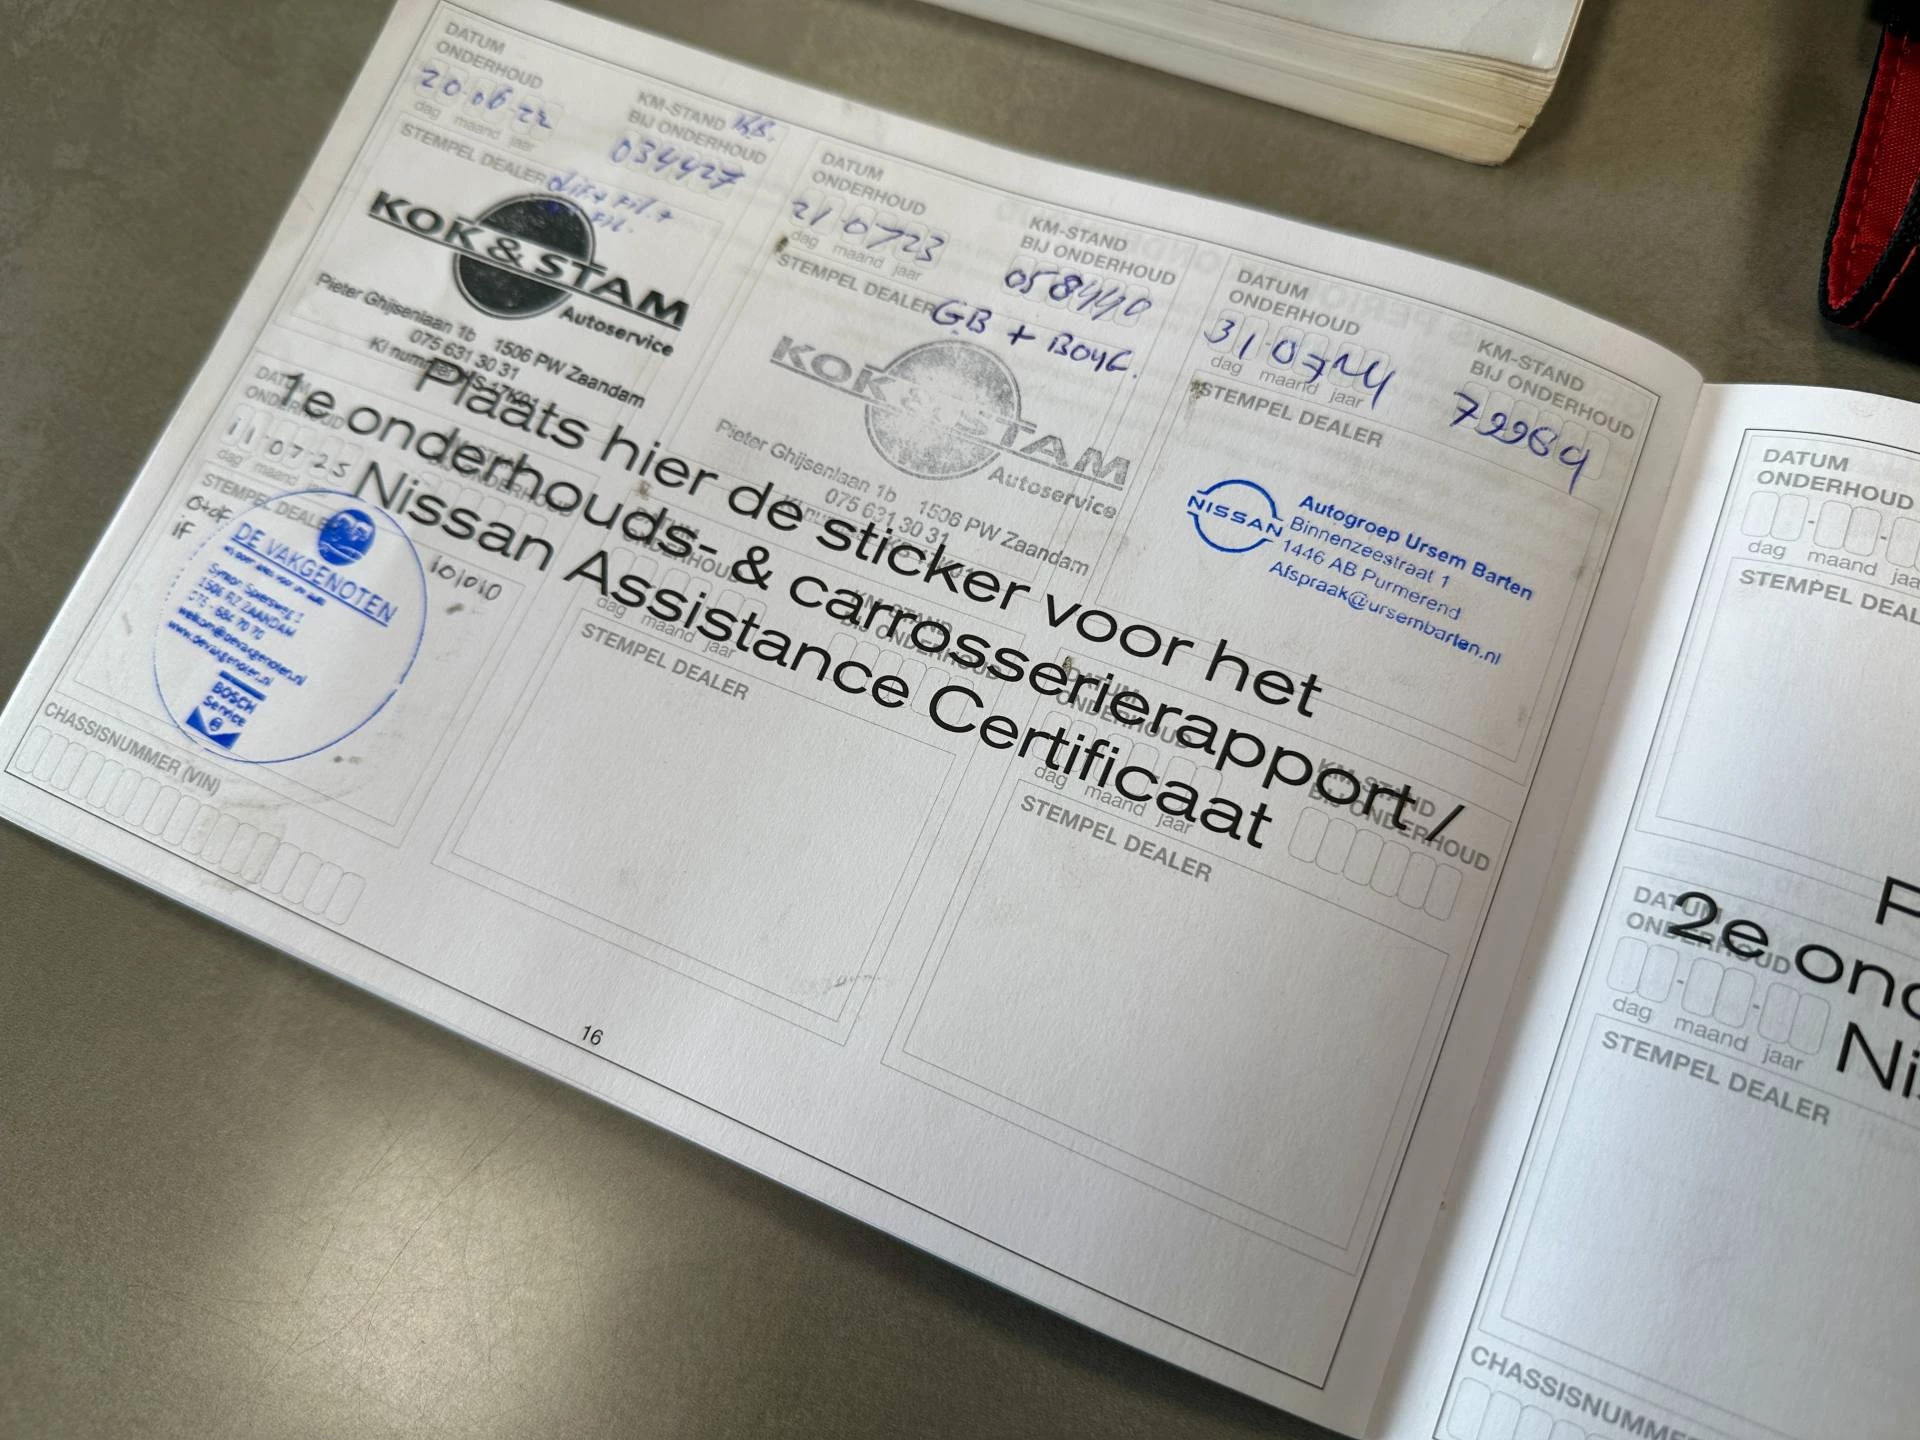 DATUM
ONDERHOUD
20-06-22
dag maand jaar
KM-STAND
BIJ ONDERHOUD
034427
STEMPEL DEALER
KOK & STAM
Autoservice
Pieter Ghijsenlaan 1b 1506 PW Zaandam
075 631 30 31
DATUM
ONDERHOUD
21-0723
dag maand jaar
KM-STAND
BIJ ONDERHOUD
058440
STEMPEL DEALER
GB +
KOK & STAM
Autoservice
Pieter Ghijsenlaan 1b 1506 PW Zaandam
075 631 30 31
DATUM
ONDERHOUD
31-0724
dag maand jaar
KM-STAND
BIJ ONDERHOUD
STEMPEL DEALER
NISSAN
Autogroep Ursem Barten
Binnenzeestraat 1
1446 AB Purmerend
Afspraak@ursembarten.nl
Plaats hier de sticker voor het
1e onderhouds- & carrosserierapport /
Nissan Assistance Certificaat
DATUM
ONDERHOUD
11-07-25
dag maand jaar
STEMPEL DEALER
DE VAKGENOTEN
1506 RZ ZAANDAM
075 - 684 70 70
welkom@devakgenoten.nl
www.devakgenoten.nl
BOSCH
Service
CHASSISNUMMER (VIN)
ONDERHOUD
dag maand jaar
KM-STAND
BIJ ONDERHOUD
STEMPEL DEALER
DATUM
ONDERHOUD
dag maand jaar
KM-STAND
BIJ ONDERHOUD
STEMPEL DEALER
16
DATUM
ONDERHOUD
dag maand
STEMPEL
2e
DATUM
ONDERHOUD
dag maand jaar
STEMPEL DEALER